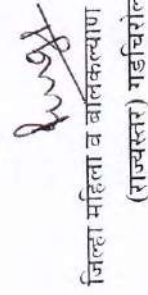 जिल्हा महिला व बालकल्याण
(राज्यस्तर) गडचिरोल